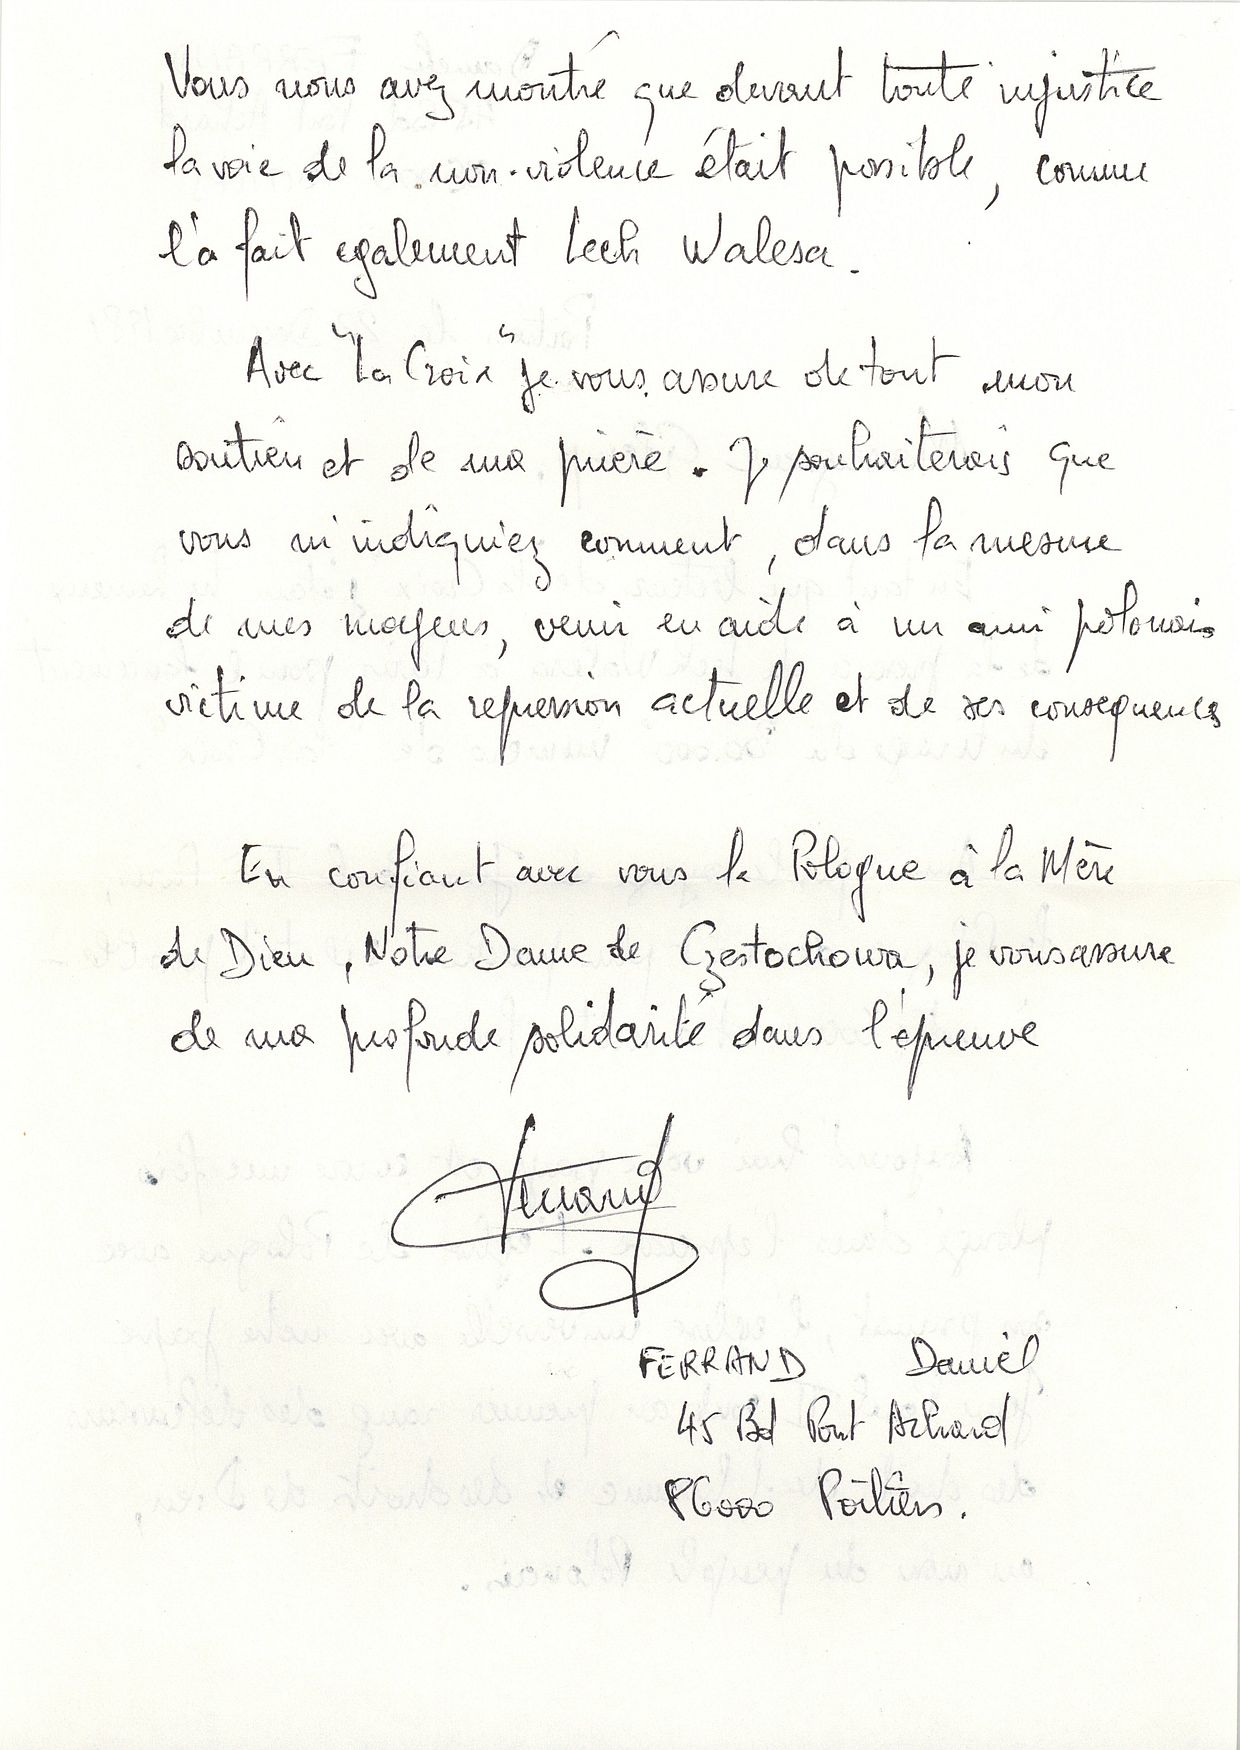 Vous nous avez montré que devant toute injustice
la voie de la non-violence était possible, comme
l'a fait egalement Lech Walesa.
Avec "La Croix" je vous assure de tout mon
soutien et de ma prière. Je souhaiterais que
vous m'indiquiez comment, dans la mesure
de mes moyens, venir en aide à un ami polonais
victime de la repression actuelle et de ses consequences
En confiant avec vous la Pologne à la Mère
de Dieu, Notre Dame de Czestochowa, je vous assure
de ma profonde solidarité dans l'épreuve
Ferrand
FERRAND Daniel
45 Bd Pont Achard
86000 Poitiers.